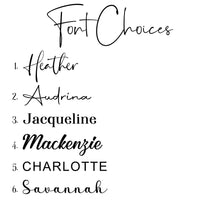 Font Choices
1. Heather
2. Audrina
3. Jacqueline
4. Mackenzie
5. CHARLOTTE
6. Savannah